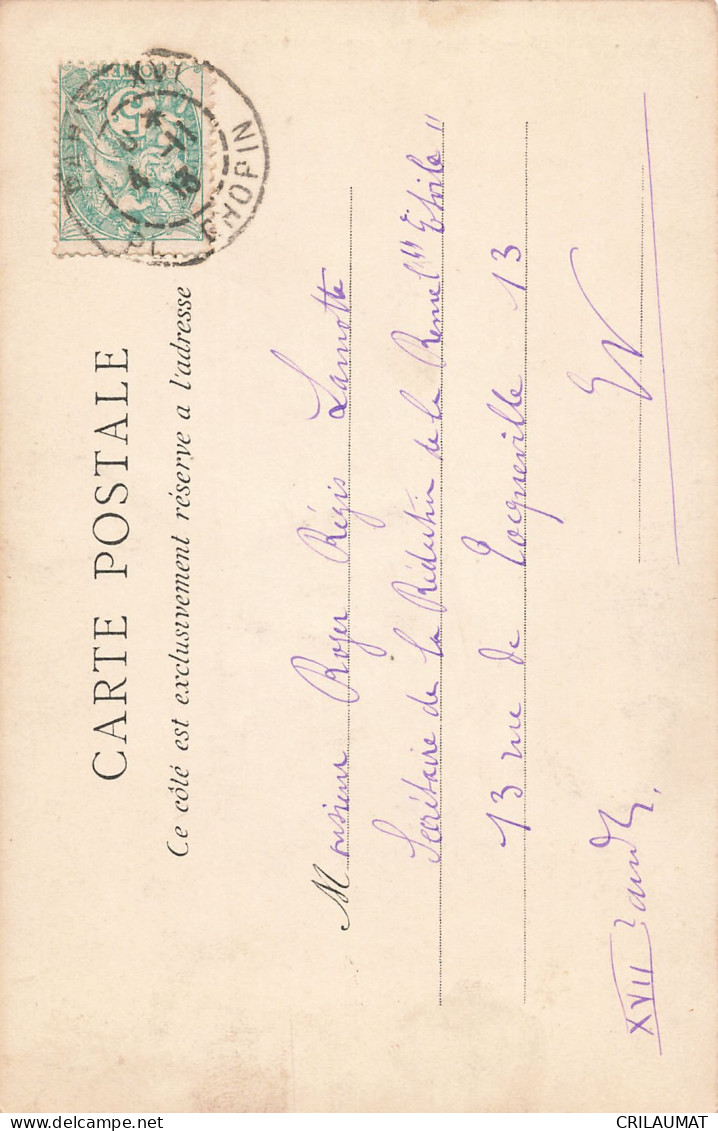 CARTE POSTALE
Ce côté est exclusivement réservé a l'adresse
PARIS XVI
PL. CHOPIN
Monsieur Roger Régis Lamotte
Secrétaire de la Rédaction de la Revue "Etoile"
13 rue de Tocqueville 13
EV
XVII
CRILAUMAT